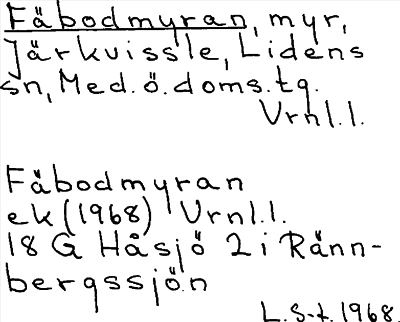 Fäbodmyran, myr,
Järkvissle, Lidens
sn, Med.ö.doms.tg.
Vrnl.l.
Fäbodmyran
ek (1968) Vrnl.l.
18 G Håsjö 2 i Ränn-
bergssjön
L.S-t. 1968.